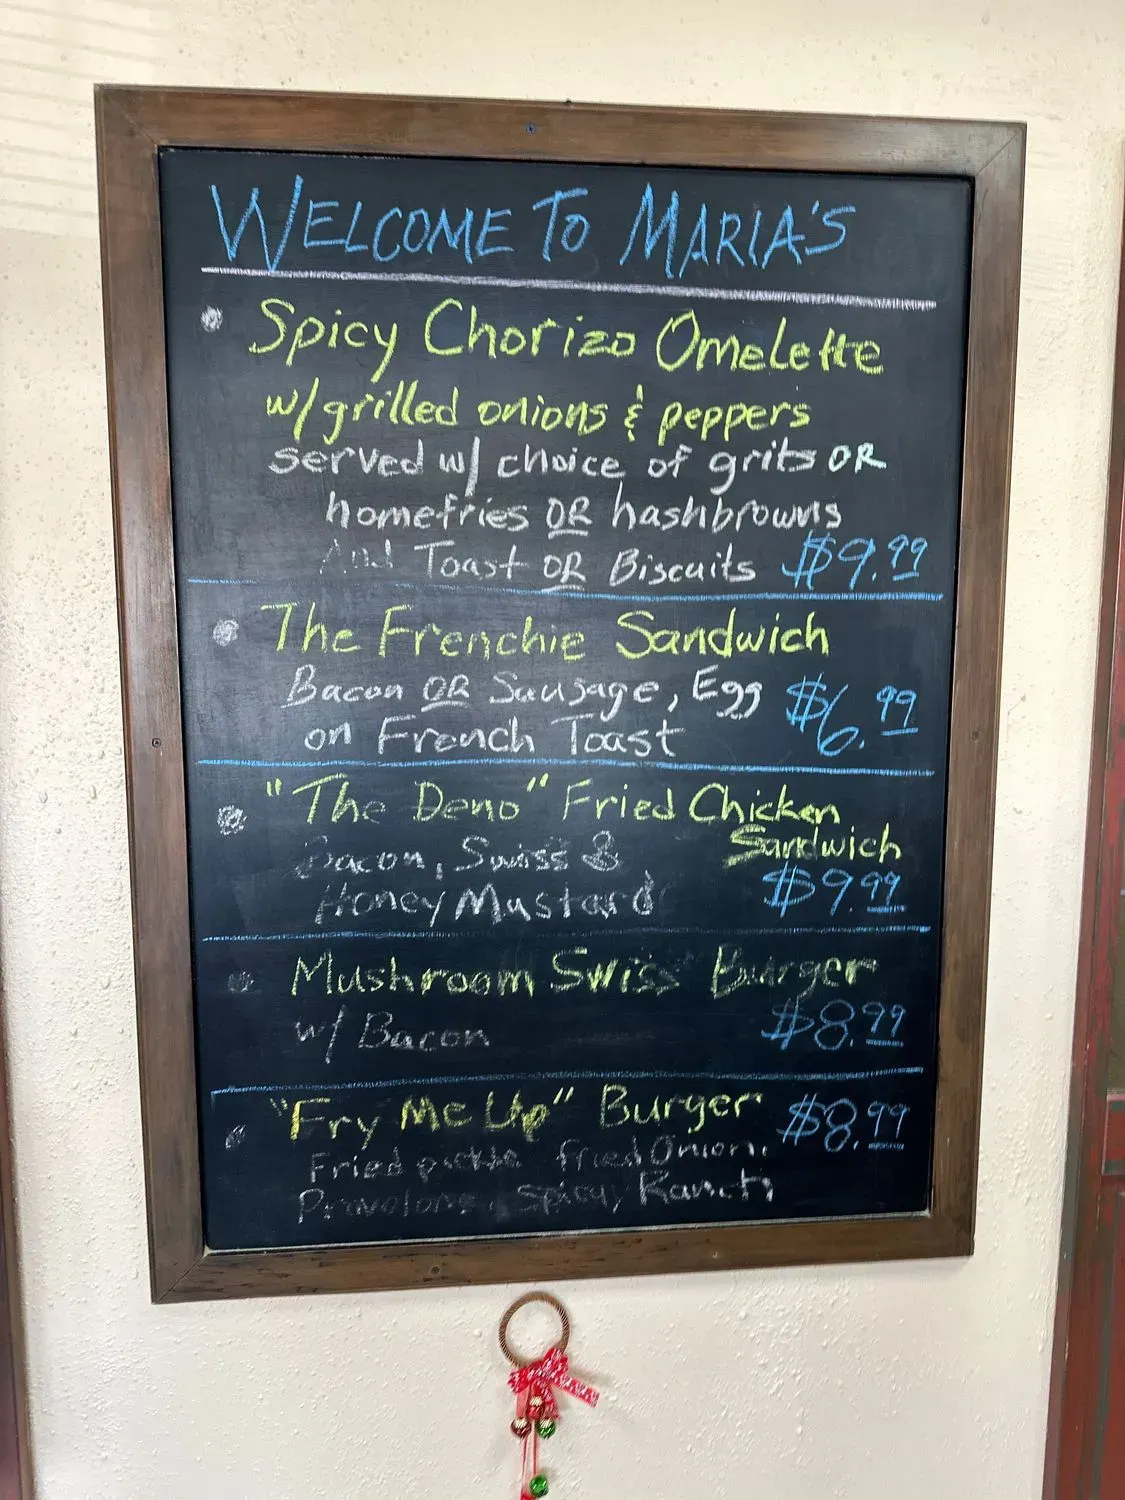 WELCOME TO MARIA'S
Spicy Chorizo Omelette
w/ grilled onions & peppers
served w/ choice of grits OR
homefries OR hashbrowns
And Toast OR Biscuits $9.99
The Frenchie Sandwich
Bacon OR Sausage, Egg $6.99
on French Toast
"The Deno" Fried Chicken
Sandwich
Bacon, Swiss &
Honey Mustard $9.99
Mushroom Swiss Burger
w/ Bacon $8.99
"Fry Me Up" Burger $8.99
Fried pickle fried Onion,
Provolone, spicy Ranch